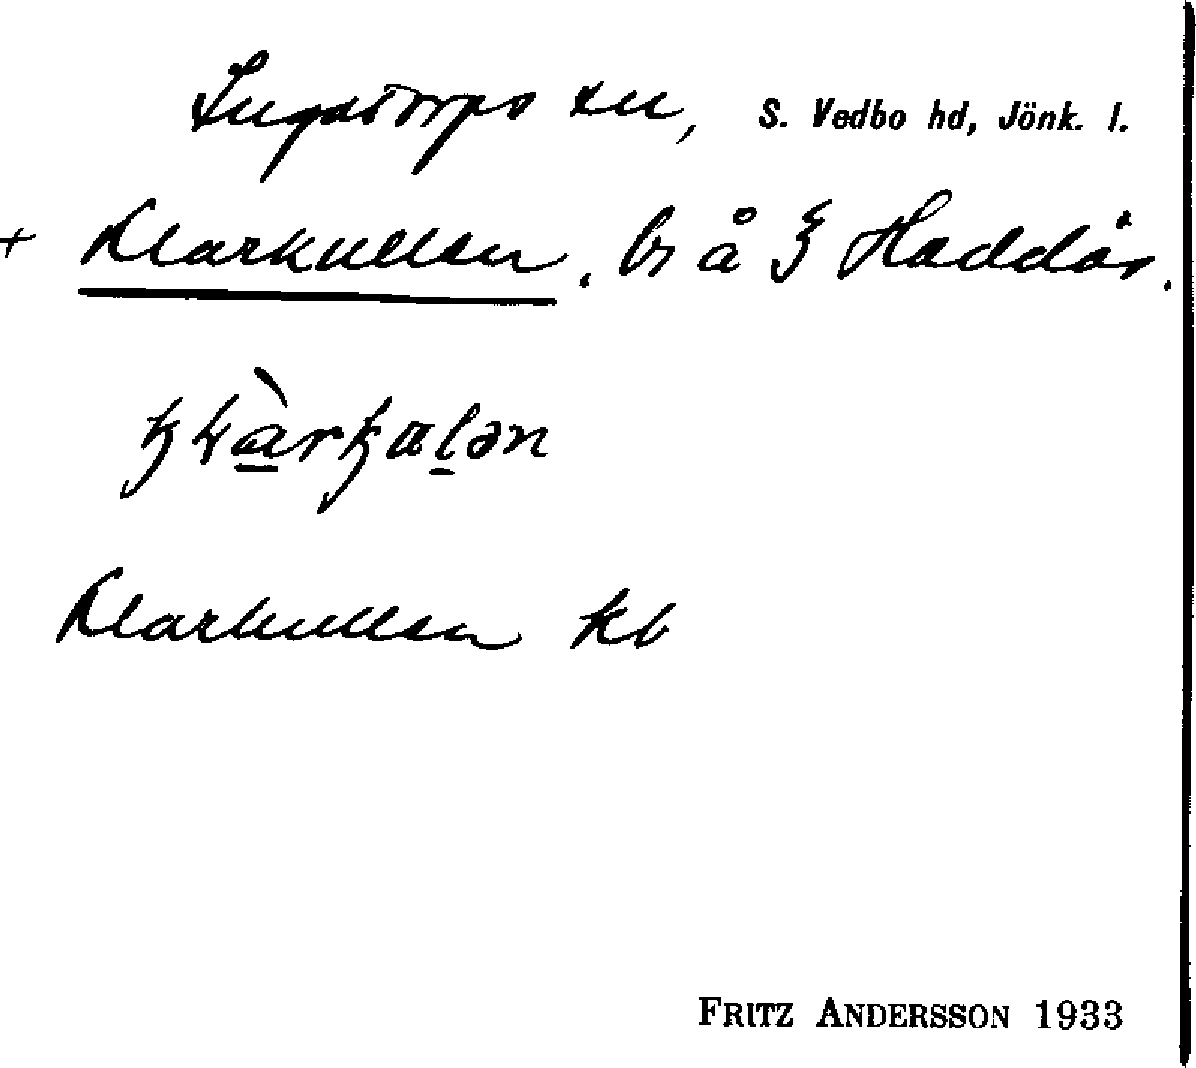 Ingatorps sn, S. Vedbo hd, Jönk. l.
+ Klarkullen. br å Haddås.
Klarkullen kb
FRITZ ANDERSSON 1933